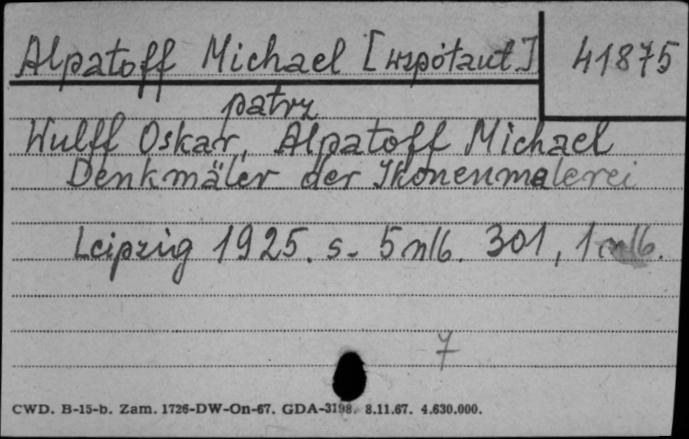 Alpatoff Michael [współaut.] 41875
patrz
Wulff Oskar, Alpatoff Michael
Denkmäler der Ikonenmalerei
Leipzig 1925. s. 5 nlb. 301, 1 nlb.
7
CWD. B-15-b. Zam. 1726-DW-On-67. GDA-3198. 8.11.67. 4.630.000.